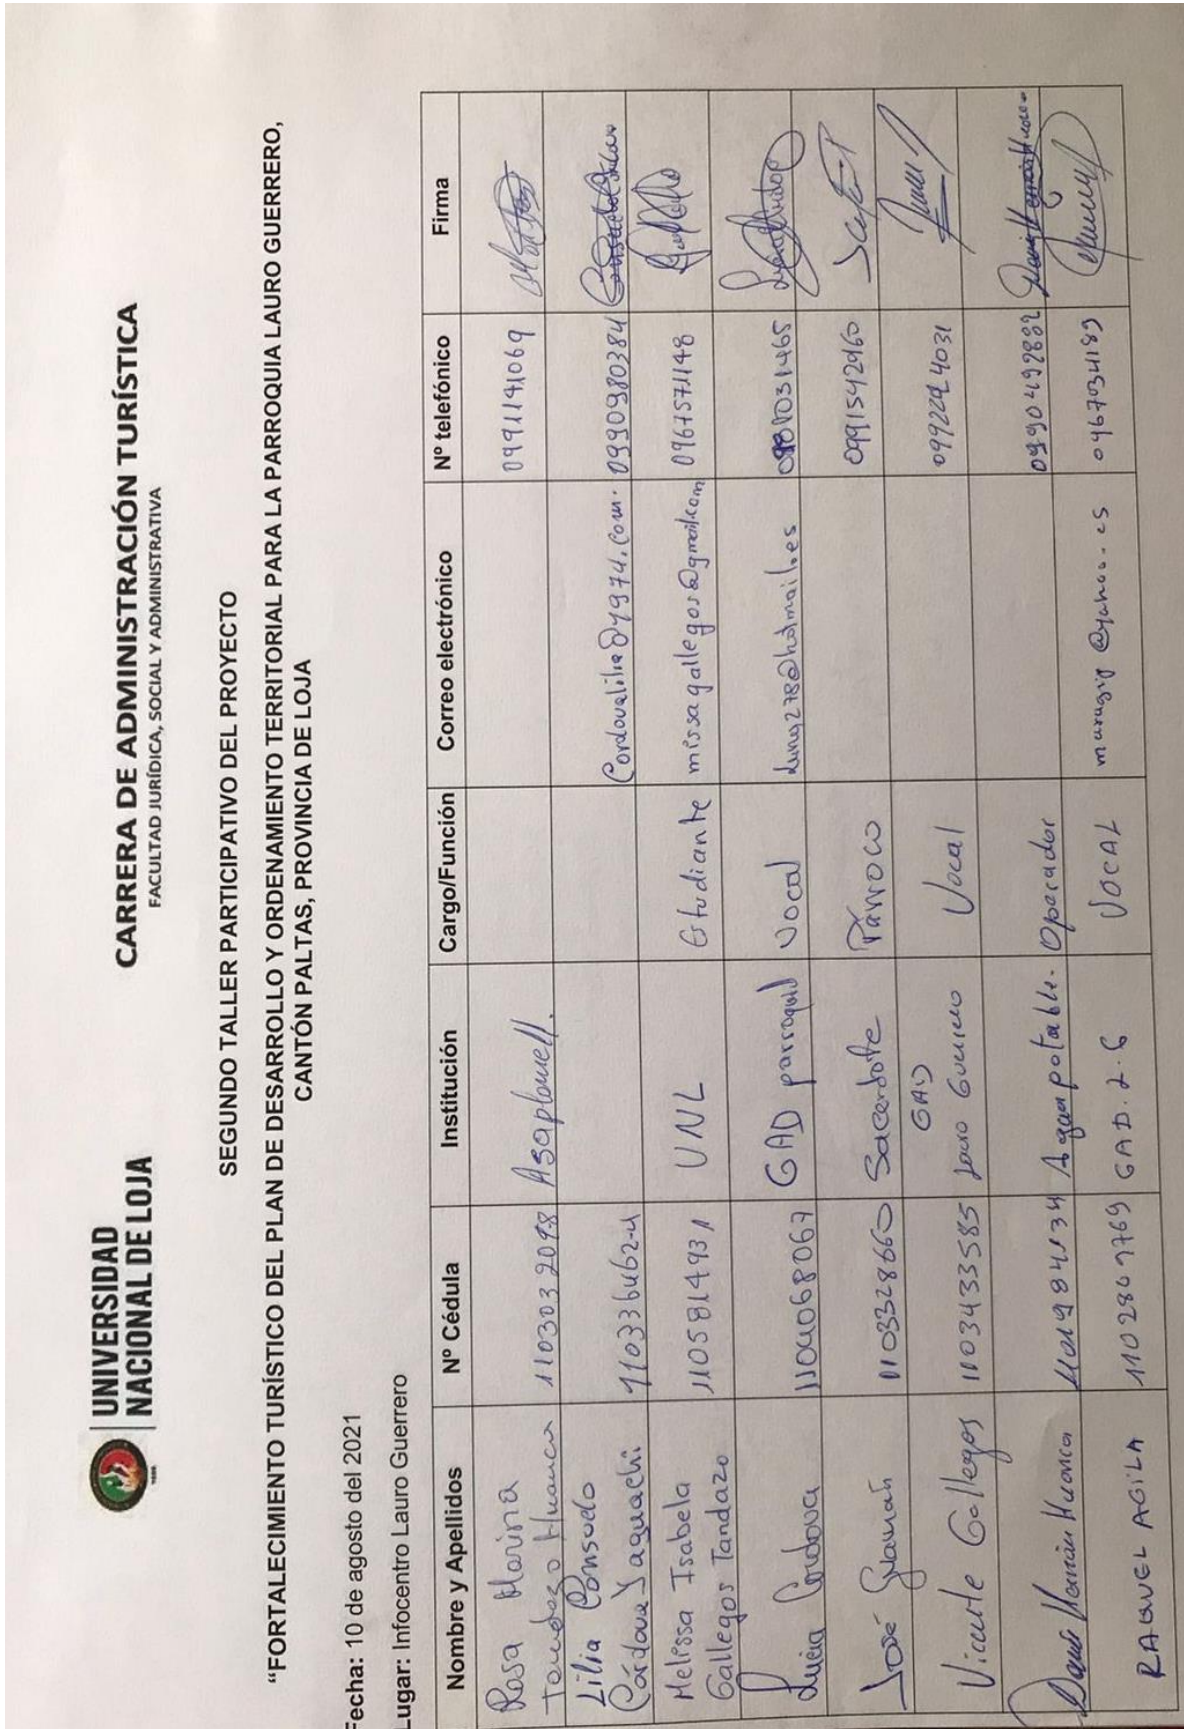 UNIVERSIDAD
NACIONAL DE LOJA
CARRERA DE ADMINISTRACIÓN TURÍSTICA
FACULTAD JURÍDICA, SOCIAL Y ADMINISTRATIVA
SEGUNDO TALLER PARTICIPATIVO DEL PROYECTO
“FORTALECIMIENTO TURÍSTICO DEL PLAN DE DESARROLLO Y ORDENAMIENTO TERRITORIAL PARA LA PARROQUIA LAURO GUERRERO,
CANTÓN PALTAS, PROVINCIA DE LOJA
Fecha: 10 de agosto del 2021
Lugar: Infocentro Lauro Guerrero
Nombre y Apellidos Nº Cédula Institución Cargo/Función Correo electrónico Nº telefónico Firma
Rosa Marina
Tandazo Huanca 1103032098 0991141069
Lilia Consuelo
Córdova Yaguachi Cordovalilia@1974.com. 0990980384
Melissa Isabela
Gallegos Tandazo 1105814931 UNL Estudiante missagallegos@gmail.com 0967571148
Lucia Cordova 1104068067 GAD parroquial Vocal 
José 1103328660 Sacerdote Párroco 0991542960
Vicente Gallegos 1103433585 GAD
Lauro Guerrero Vocal 0992224031
Hernán Huanca Agua potable. Operador 0990492832
RAQUEL AGILA 1102869769 GAD. L. G VOCAL 0967034189